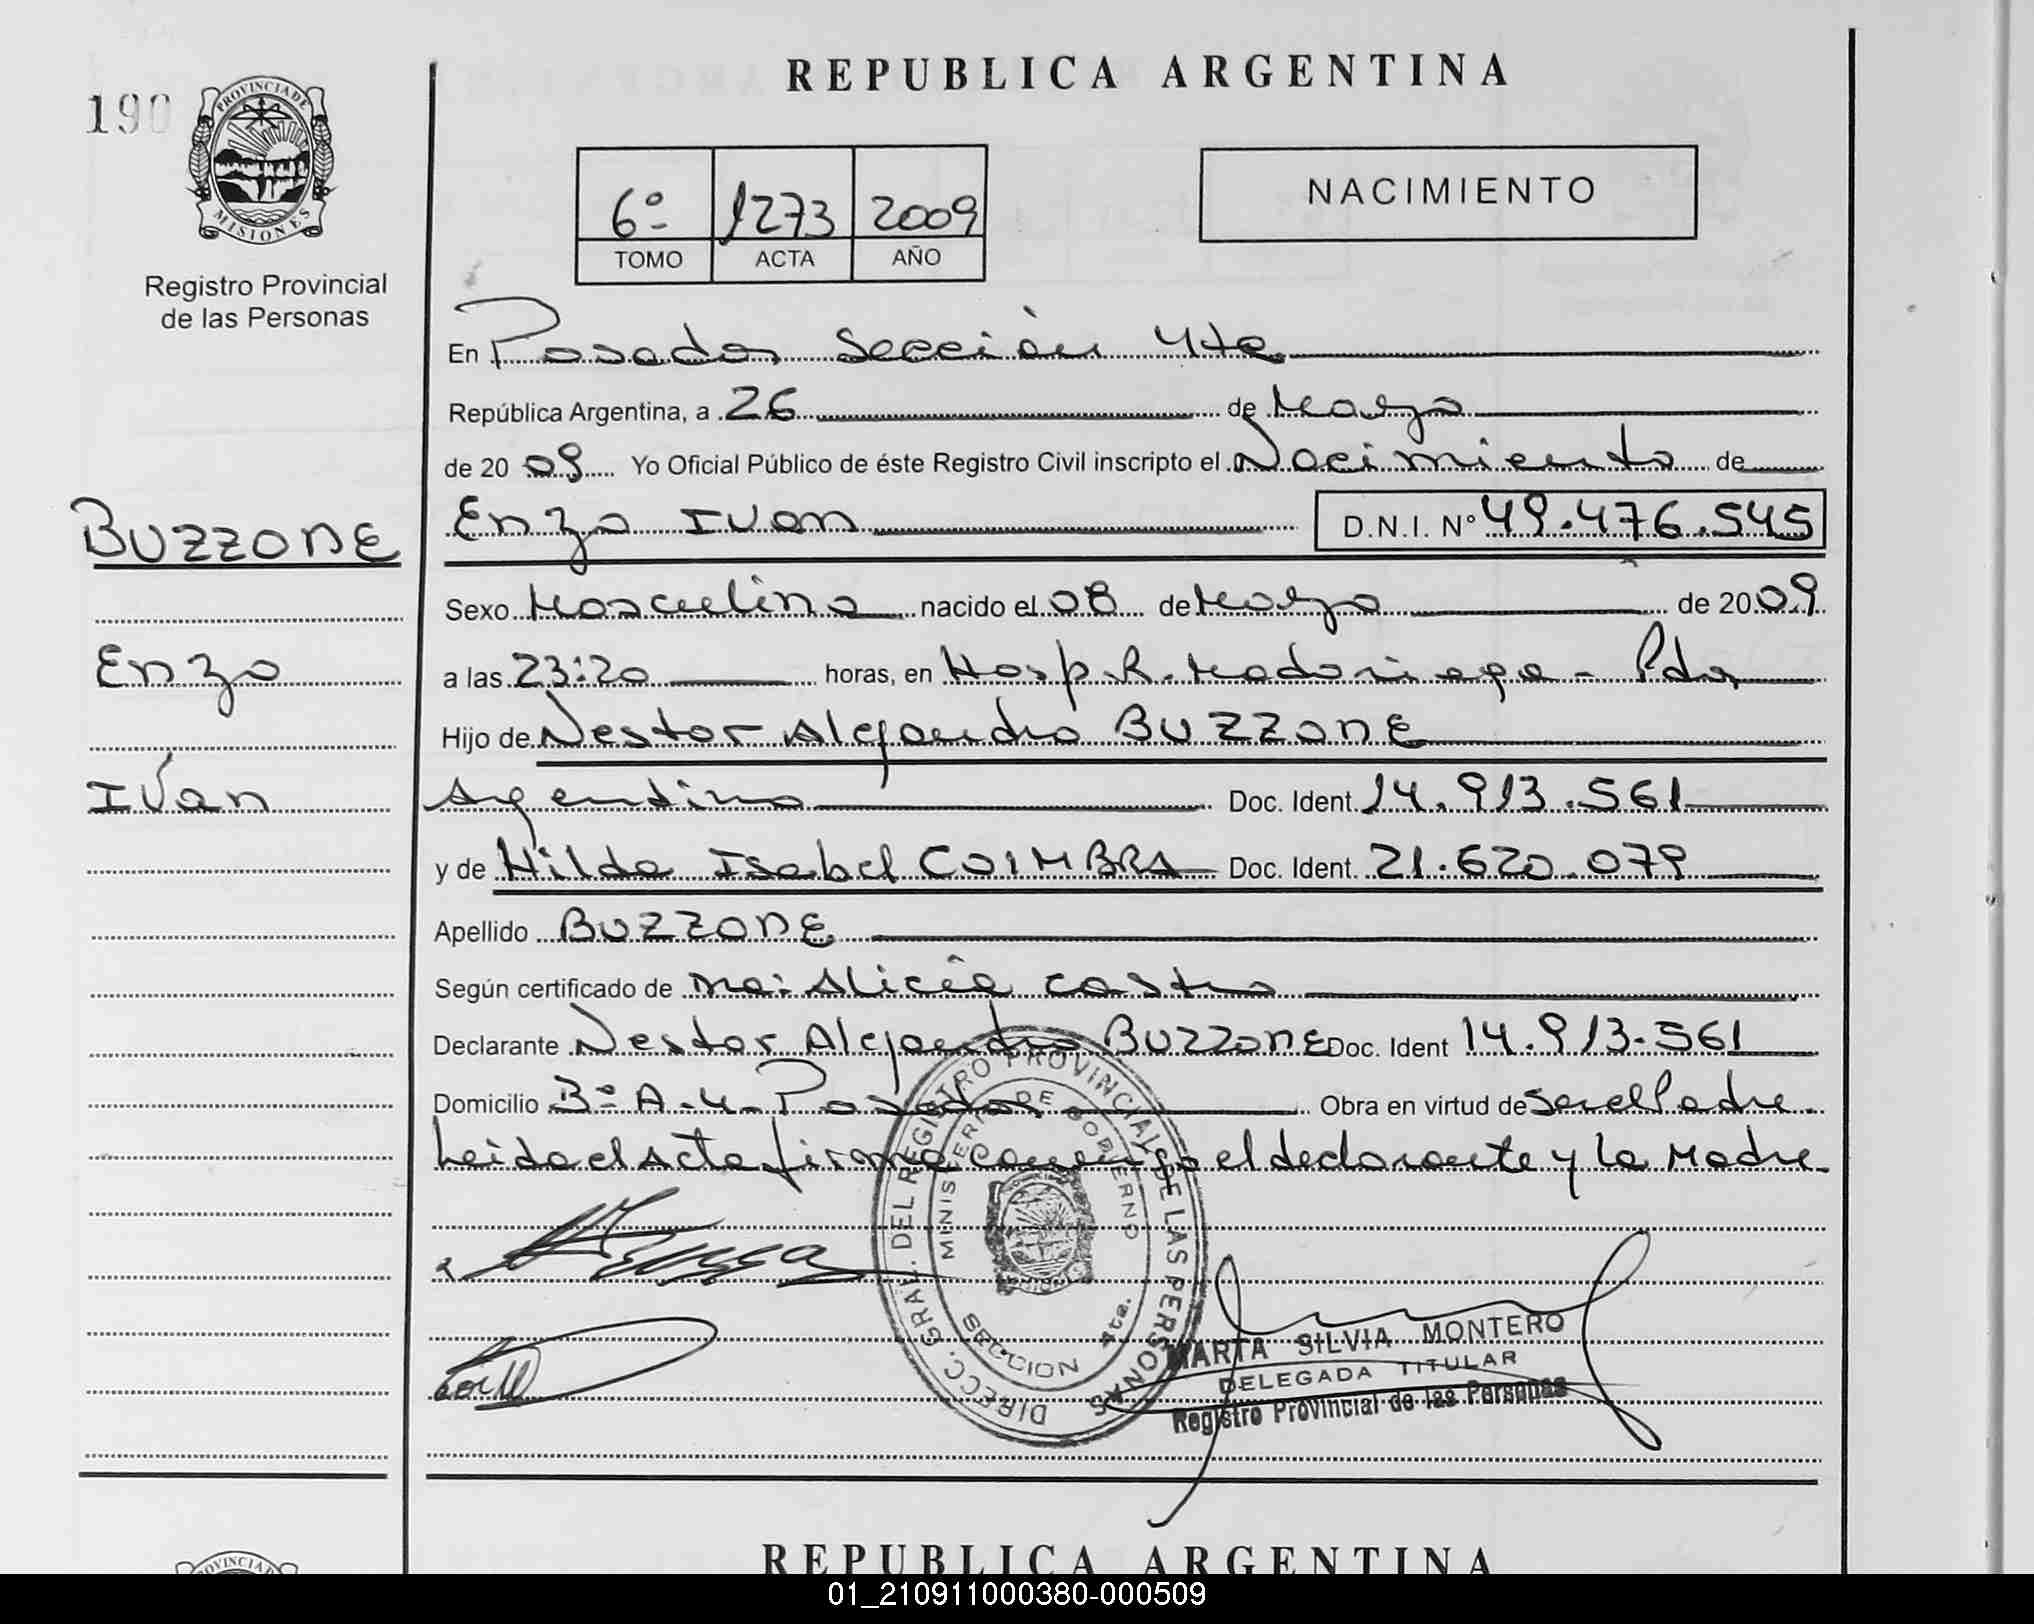 REPUBLICA ARGENTINA
190
PROVINCIA DE
MISIONES
Registro Provincial
de las Personas
6º 1273 2009
TOMO ACTA AÑO
NACIMIENTO
En Posadas Sección 4ta
República Argentina, a 26 de Marzo
de 2009 Yo Oficial Público de éste Registro Civil inscripto el Nacimiento de
BUZZONE
Enzo Ivan D.N.I. Nº 49.476.545
Sexo Masculino nacido el 08 de Marzo de 2009
Enzo
a las 23:20 horas, en Hosp. R. Madariaga - Pdas
Hijo de Nestor Alejandro BUZZONE
Iván
Argentino Doc. Ident. 14.913.561
y de Hilda Isabel COIMBRA Doc. Ident. 21.620.079
Apellido BUZZONE
Según certificado de Alicia Castro
Declarante Nestor Alejandro BUZZONE Doc. Ident 14.913.561
Domicilio Bº A-4- Posadas Obra en virtud de ser el Padre.
Leida el Acta firma conmigo el declarante y la Madre
DIRECC. GRAL. DEL REGISTRO PROVINCIAL DE LAS PERSONAS
MINISTERIO DE GOBIERNO
SECCION 4ta.
MARTA SILVIA MONTERO
DELEGADA TITULAR
Registro Provincial de las Personas
PROVINCIA
REPUBLICA ARGENTINA
01_210911000380-000509